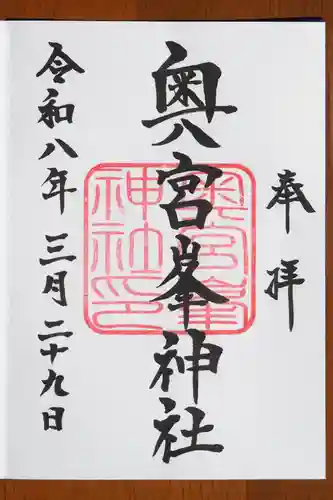 奉拝
奥宮峯神社
奥宮峯神社印
令和八年三月二十九日